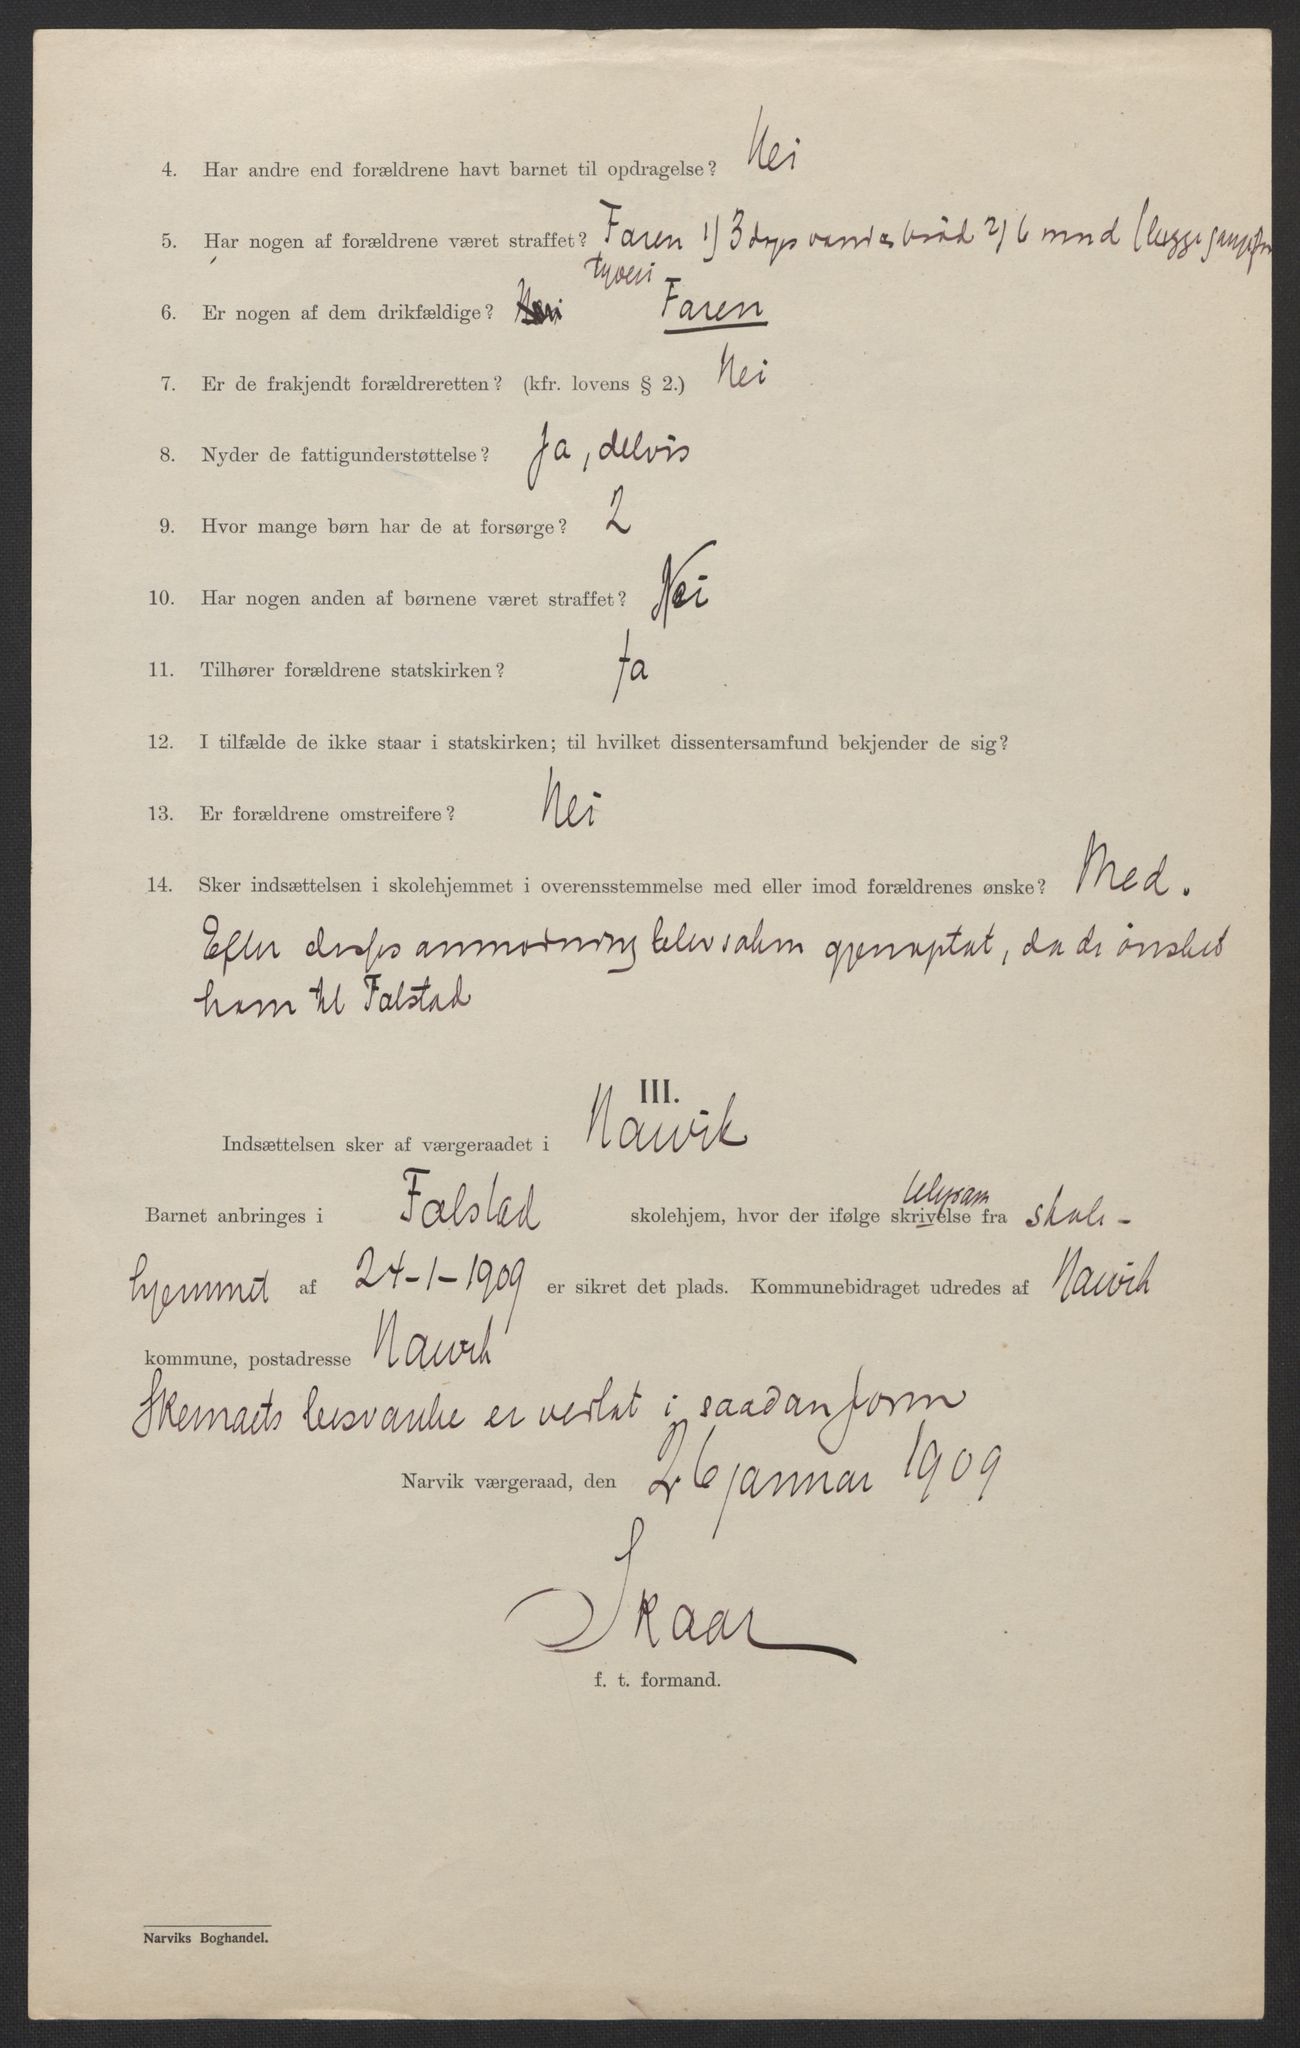 4. Har andre end forældrene havt barnet til opdragelse? Nei
5. Har nogen af forældrene været straffet? Faren 1) 3 dages vand & brød 2) 6 mnd (begge gange for
tyveri
6. Er nogen af dem drikfældige? Nei Faren
7. Er de frakjendt forældreretten? (kfr. lovens § 2.) Nei
8. Nyder de fattigunderstøttelse? Ja, delvis
9. Hvor mange børn har de at forsørge? 2
10. Har nogen anden af børnene været straffet? Nei
11. Tilhører forældrene statskirken? Ja
12. I tilfælde de ikke staar i statskirken; til hvilket dissentersamfund bekjender de sig?
13. Er forældrene omstreifere? Nei
14. Sker indsættelsen i skolehjemmet i overensstemmelse med eller imod forældrenes ønske? Med.
Efter anmodning blev saken gjenoptat, da de ønsket
ham til Falstad
III.
Indsættelsen sker af værgeraadet i Narvik
telegram
Barnet anbringes i Falstad skolehjem, hvor der ifølge skrivelse fra skole-
hjemmet af 24-1-1909 er sikret det plads. Kommunebidraget udredes af Narvik
kommune, postadresse Narvik
Skemaets besvarelse er vedtat i saadan form
Narvik værgeraad, den 26 januar 1909
Skaar
f. t. formand.
Narviks Boghandel.